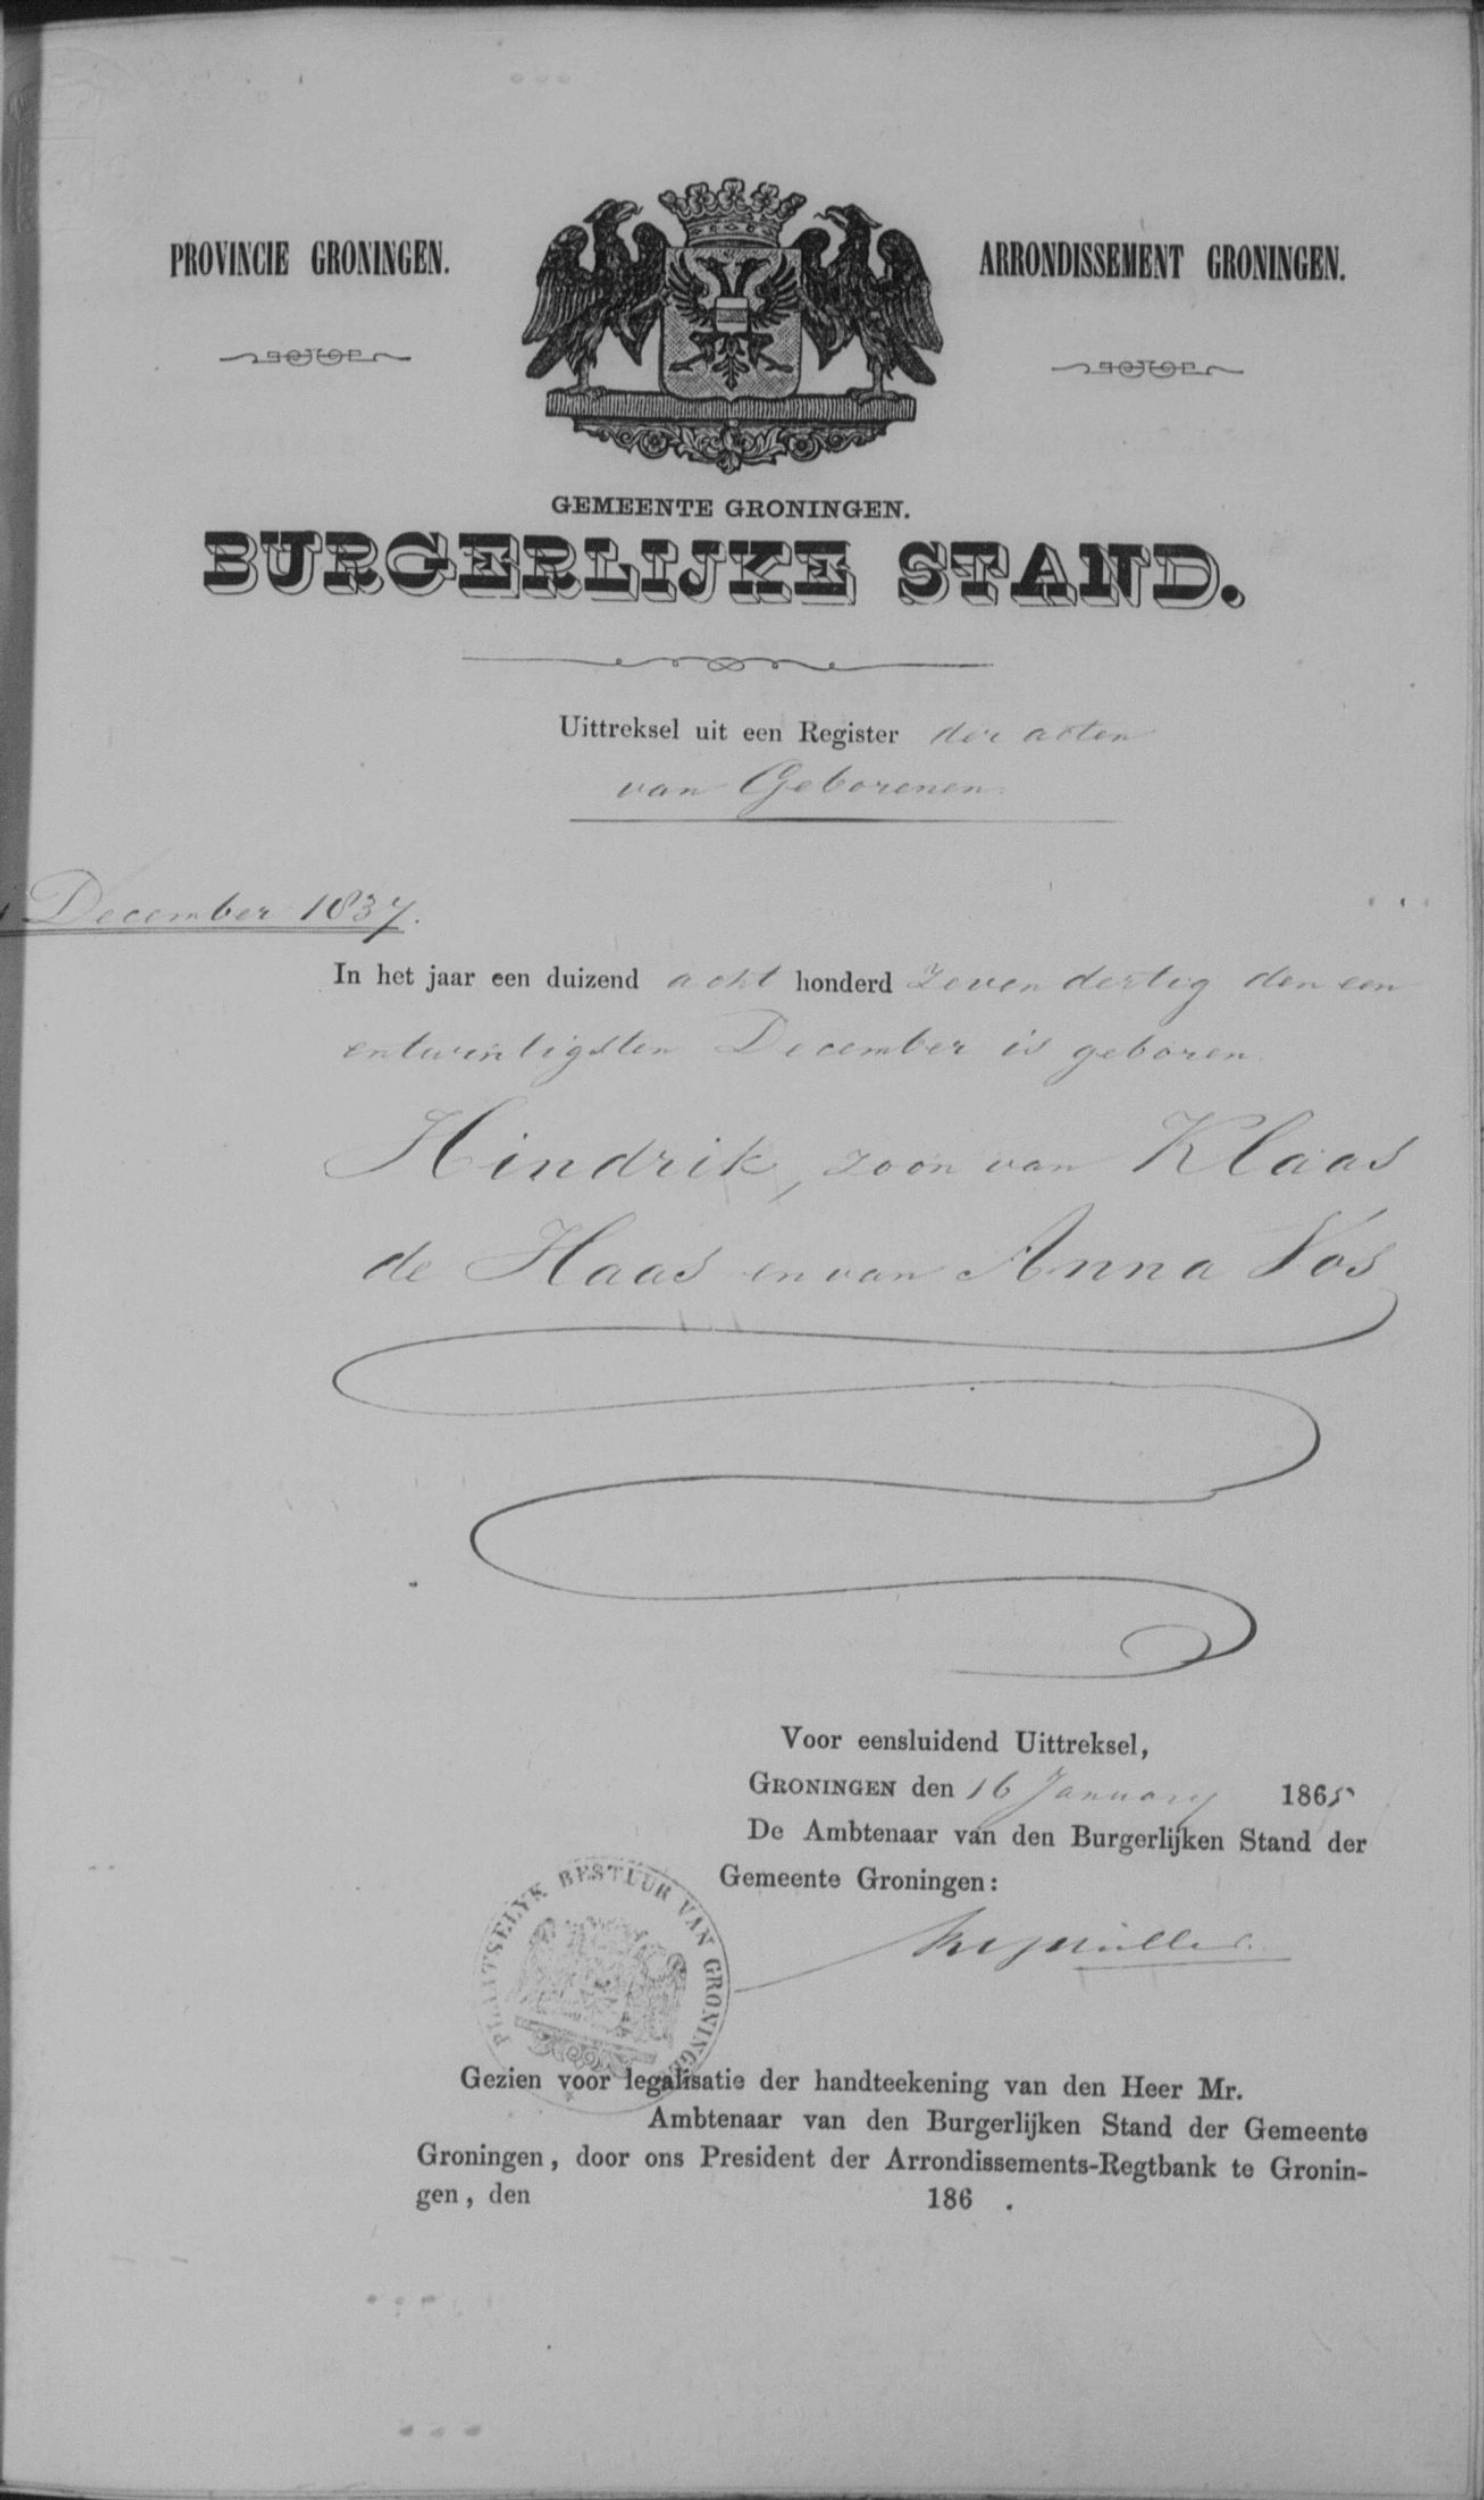 PROVINCIE GRONINGEN.
ARRONDISSEMENT GRONINGEN.
GEMEENTE GRONINGEN.
BURGERLIJKE STAND.
Uittreksel uit een Register der acten
van Geborenen
December 1837.
In het jaar een duizend acht honderd zeven dertig den een
entwintigsten December is geboren
Hindrik, zoon van Klaas
de Haas en van Anna Vos
Voor eensluidend Uittreksel,
GRONINGEN den 16 January 1865
De Ambtenaar van den Burgerlijken Stand der
Gemeente Groningen:
PLAATSELYK BESTUUR VAN GRONINGEN
Gezien voor legalisatie der handteekening van den Heer Mr.
Ambtenaar van den Burgerlijken Stand der Gemeente
Groningen, door ons President der Arrondissements-Regtbank te Gronin-
gen, den 186 .